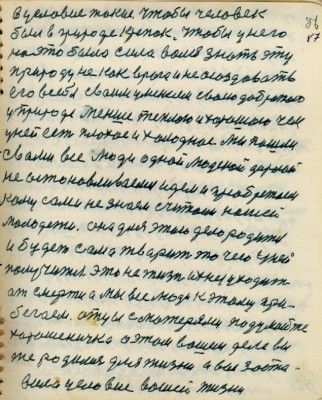 86
87
в условие такие чтобы человек
был в природе крепок. Чтобы у него
на это было сила воля знать эту
природу не как врага и не создавать
его всеми своим умением
у природе меньше теплого и хорошого чем
у ней есть плохое и холодное. Мы пошли
с вами все люди одной людской дорогой
не останавливаемся идем и приобретаем
кому сами не знаем считаем нашей
молодежи. она для этого дело родится
и будет сама творит это чего у ней
получится. это не жизнь их не уходит
от смерти а мы все люди к этому при-
бегаем. отцы с матерями подумайте
хорошеничко о этом вашем деле вы
же родились для жизни а вас заста-
вило условие вашей жизни